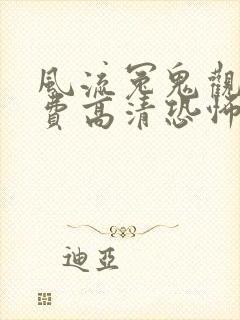 風流冤鬼觀
費高清恐怖
迪亞